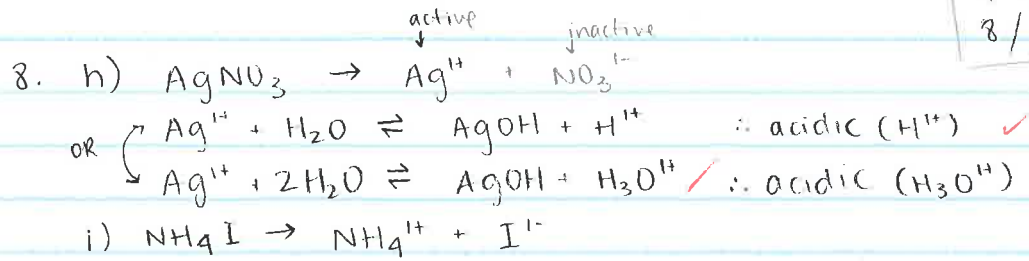 active
inactive
8/
8. h) AgNO₃ → Ag¹⁺ + NO₃¹⁻
OR Ag¹⁺ + H₂O ⇌ AgOH + H¹⁺ ∴ acidic (H¹⁺) ✓
Ag¹⁺ + 2H₂O ⇌ AgOH + H₃O¹⁺ ∴ acidic (H₃O¹⁺)
i) NH₄I → NH₄¹⁺ + I¹⁻